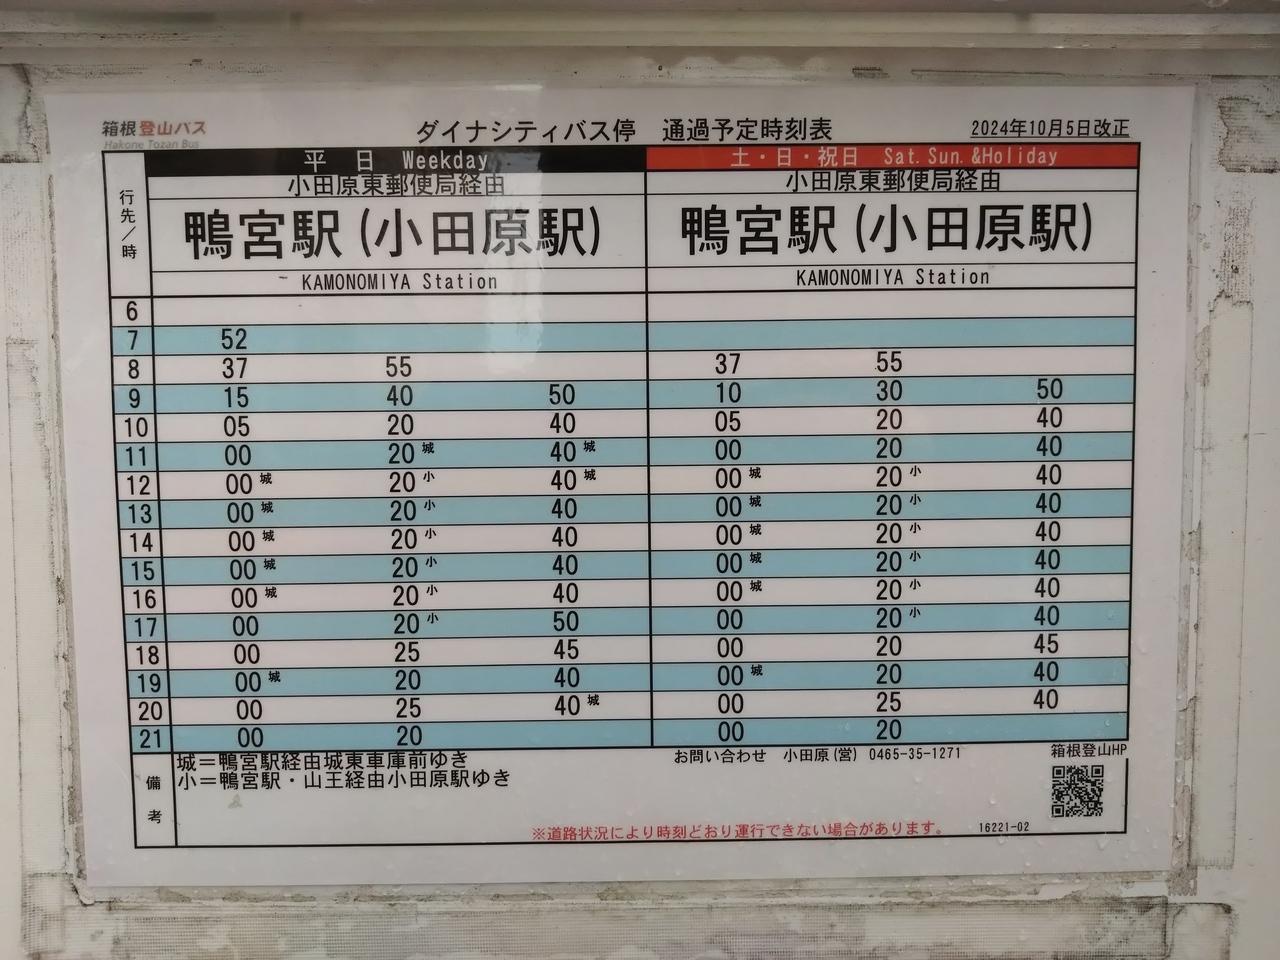 箱根登山バス
Hakone Tozan Bus
ダイナシティバス停 通過予定時刻表
2024年10月5日改正
行先／時
平 日 Weekday 土・日・祝日 Sat. Sun. &Holiday
小田原東郵便局経由 小田原東郵便局経由
鴨宮駅(小田原駅) 鴨宮駅(小田原駅)
KAMONOMIYA Station KAMONOMIYA Station
6
7 52
8 37 55 37 55
9 15 40 50 10 30 50
10 05 20 40 05 20 40
11 00 20城 40城 00 20 40
12 00城 20小 40城 00城 20小 40
13 00城 20小 40 00城 20小 40
14 00城 20小 40 00城 20小 40
15 00城 20小 40 00城 20小 40
16 00城 20小 40 00城 20小 40
17 00 20小 50 00 20小 40
18 00 25 45 00 20 45
19 00城 20 40 00城 20 40
20 00 25 40城 00 25 40
21 00 20 00 20
備考
城＝鴨宮駅経由城東車庫前ゆき
小＝鴨宮駅・山王経由小田原駅ゆき
お問い合わせ 小田原(営) 0465-35-1271
箱根登山HP
※道路状況により時刻どおり運行できない場合があります。
16221-02